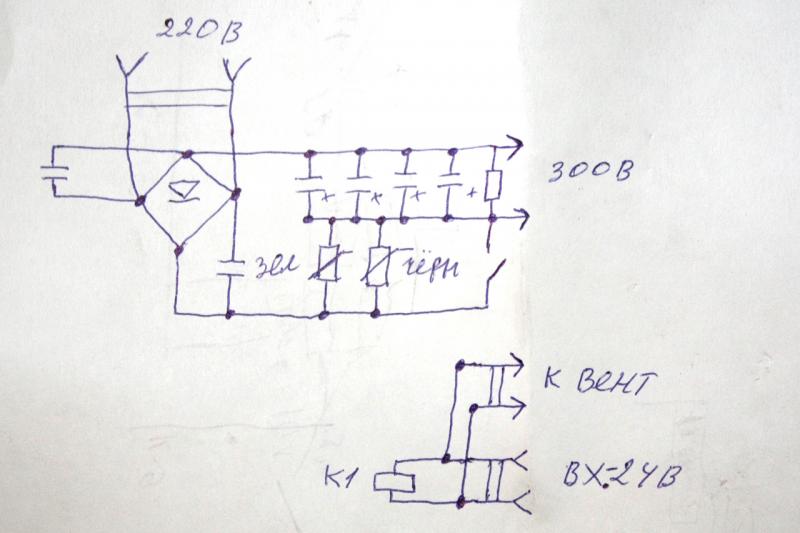 220В
300В
+ + + +
зел чёрн
К ВЕНТ
К1
ВХ=24В